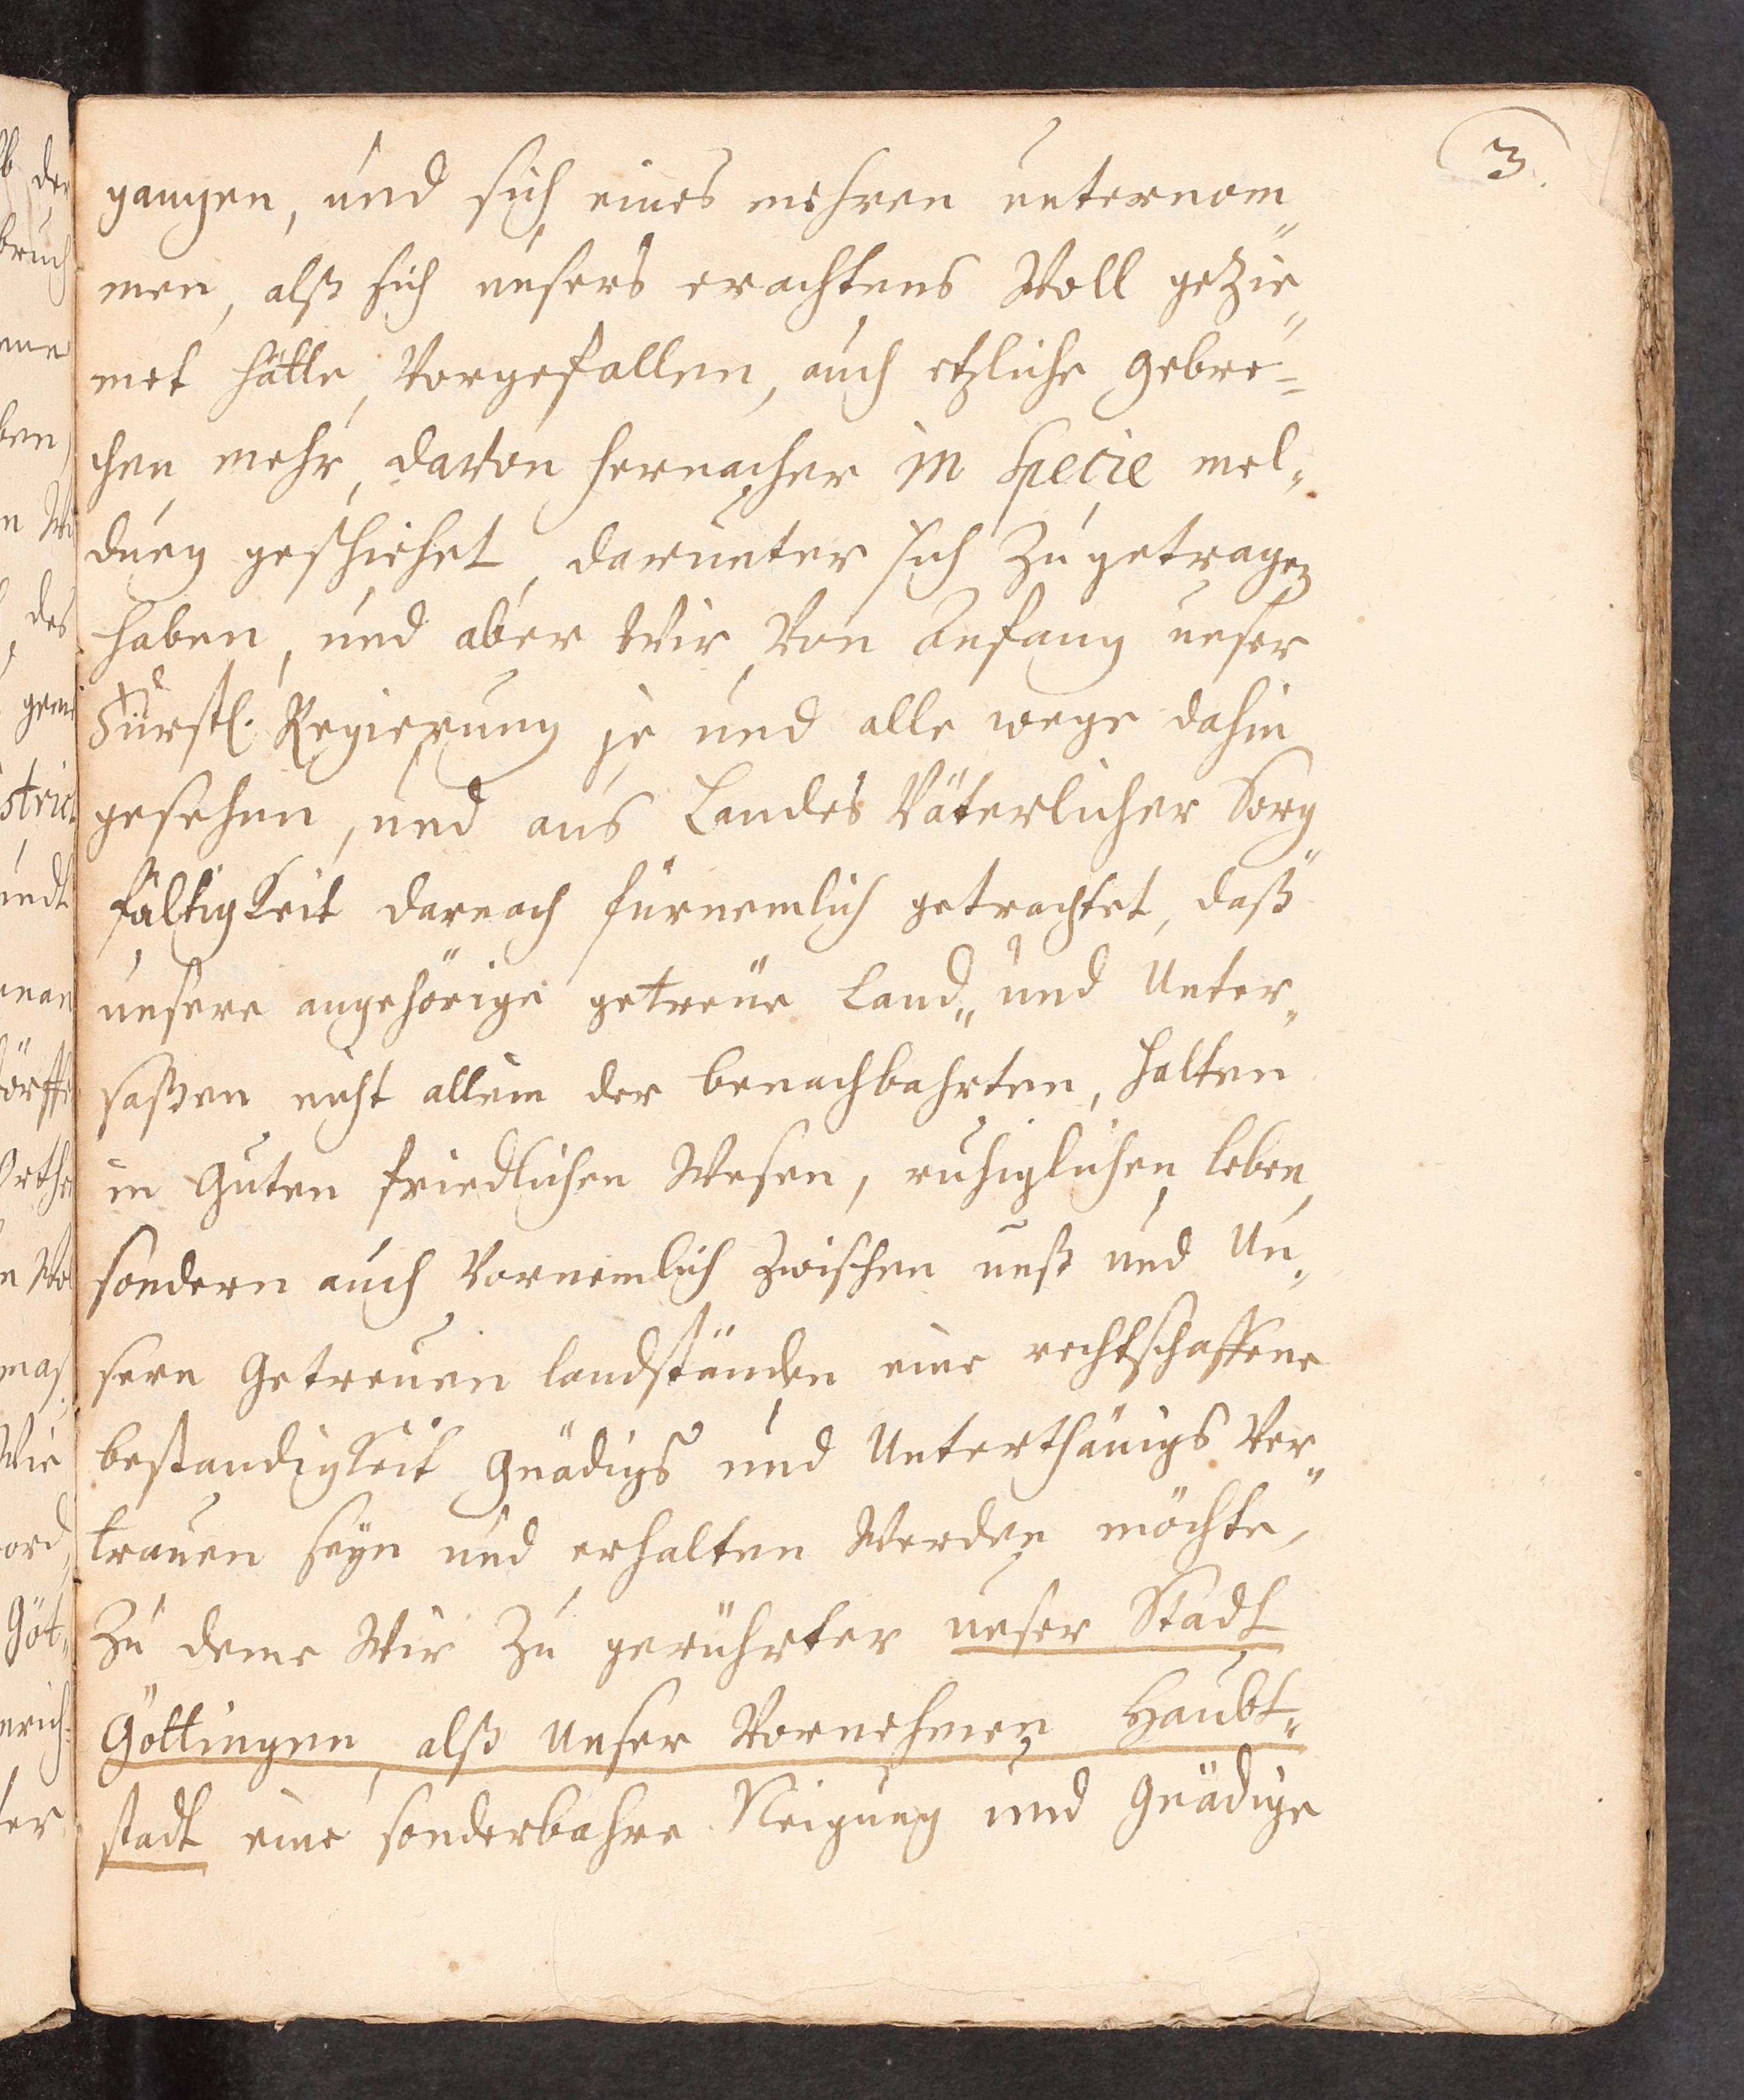 3.
gangen, und sich eines mehren unternom„
men, alß sich unsers erachtens Woll gezie„
met hätte, Vorgefallen, auch etzliche gebre=
chen mehr, davon hernacher in specie mel„
dung geschiehet, darunter sich Zugetragen
haben, und aber Wir Von Anfang unser
Fürstl. Regierung je und alle wege dahin
gesehen, und aus Landes Väterlicher Sorg
fältigkeit darnach fürnemlich getrachtet, daß
unsere angehörige getreue Land„ und Unter„
saßen nicht allein der benachbahrten, halten
in Guten friedlichen Wesen, ruhiglichen leben,
sondern auch Vornemlich zwischen unß und Un„
sern Getreuen landständen eine rechtschaffene
bestandigkeit Gnädigs und Unterthänigs Ver„
trauen seyn und erhalten Werden möchte,
Zu deme Wir Zu gerührter unser Stadt
Göttingen, alß Unser Vornehmen Haubt„
stadt eine sonderbahre Neigung und Gnädige